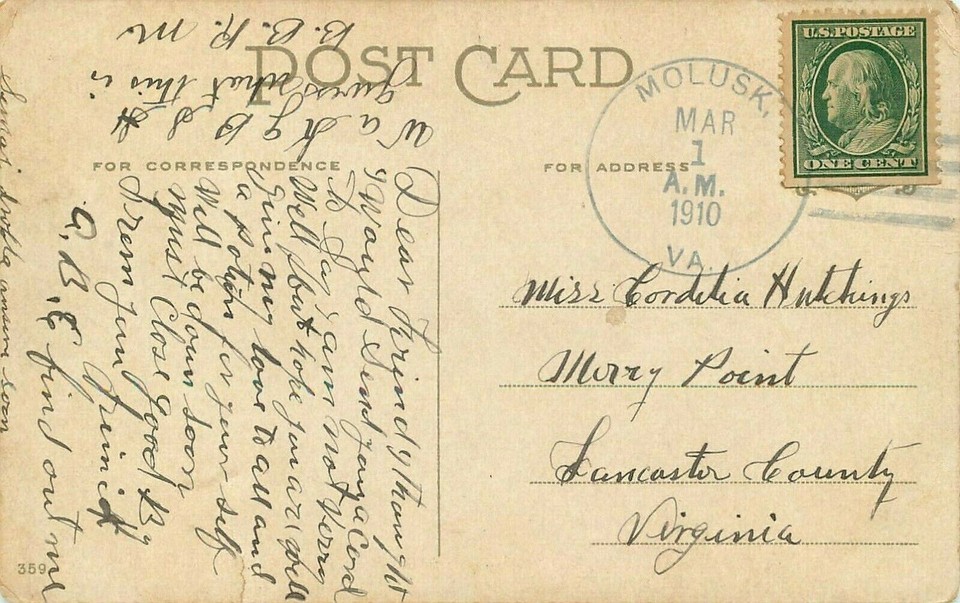 POST CARD
FOR CORRESPONDENCE
FOR ADDRESS
U.S. POSTAGE
ONE CENT
MOLUSK,
MAR
1
A.M.
1910
VA.
Miss Cordelia Hutchings
Merry Point
Lancaster County
Virginia
Dear Frind I thought
I Would Send you a Cord
To Say I am not Very
Well but hope you are Well
Give my love to all and
a potion for your self
Will be down soon
Must Close good By
From your Frind
G. B. E find out me
W a H g B S H
Guess what this is
B. B. R. M.
anure soon
359